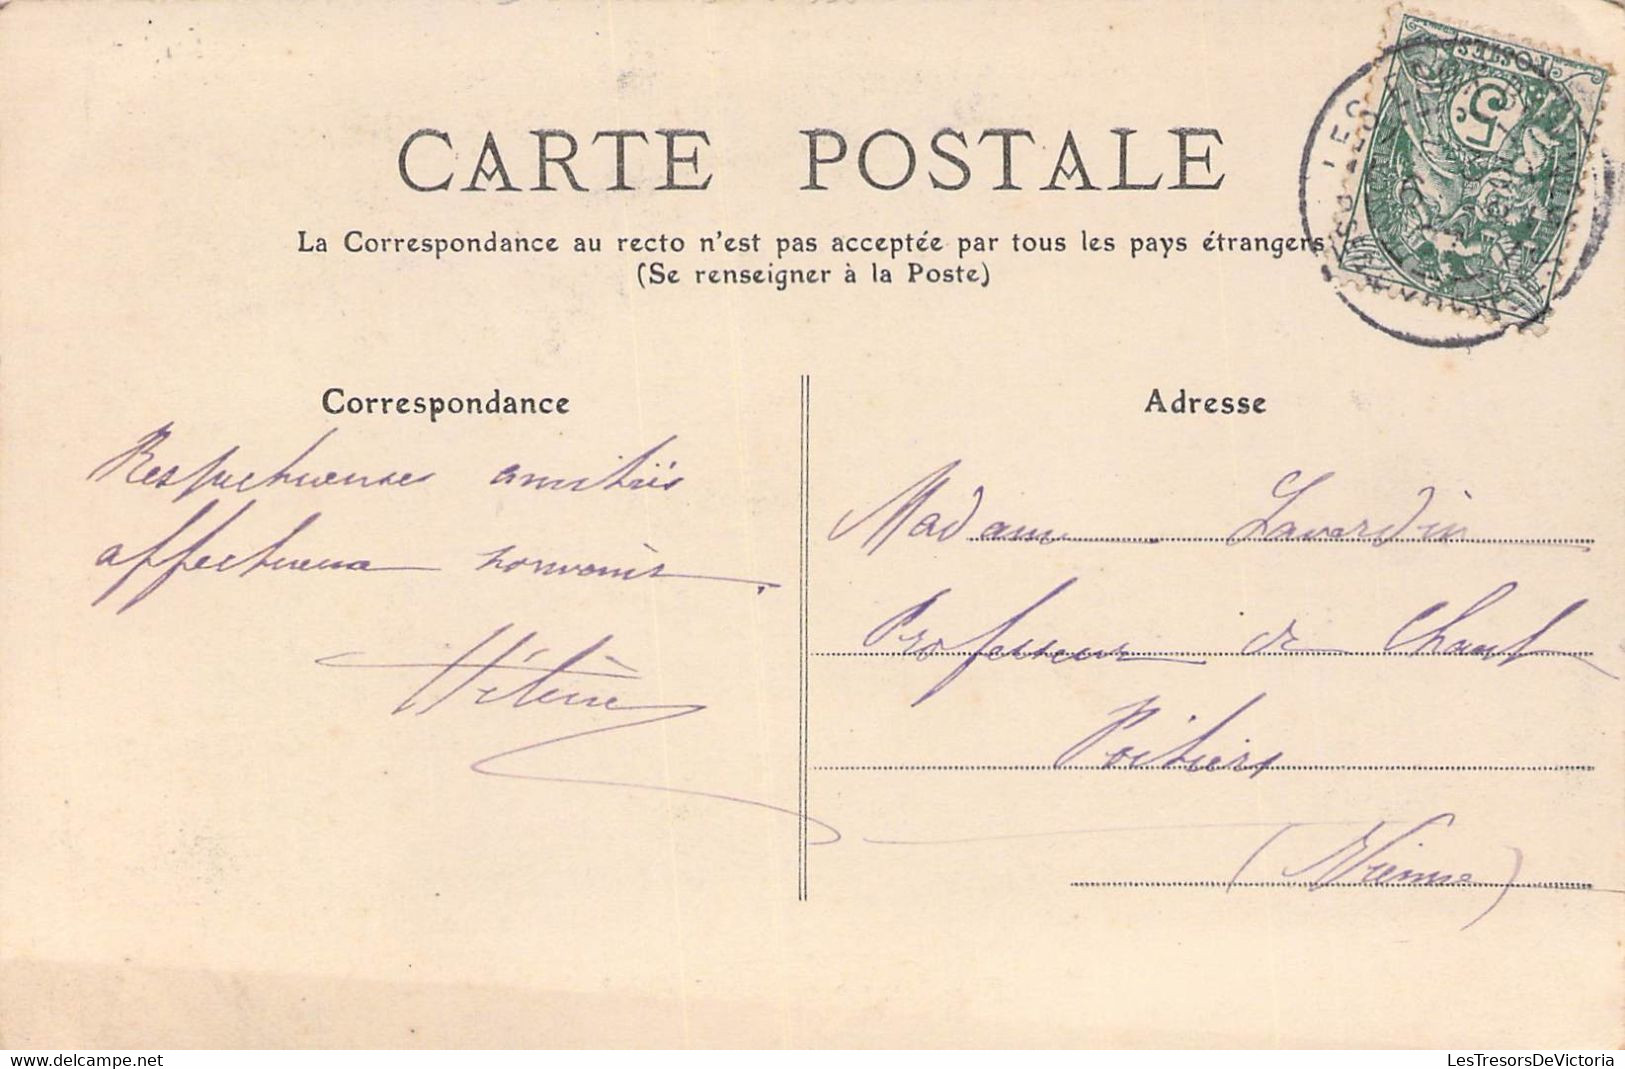 CARTE POSTALE
La Correspondance au recto n'est pas acceptée par tous les pays étrangers
(Se renseigner à la Poste)
Correspondance
Respectueuses amitiés
affectueux souvenirs.
Hélène
Adresse
Madame Laverdin
Professeur de Chant
Poitiers
(Vienne)
POSTES
5c
LesTresorsDeVictoria
lestresorsdevictoria.com